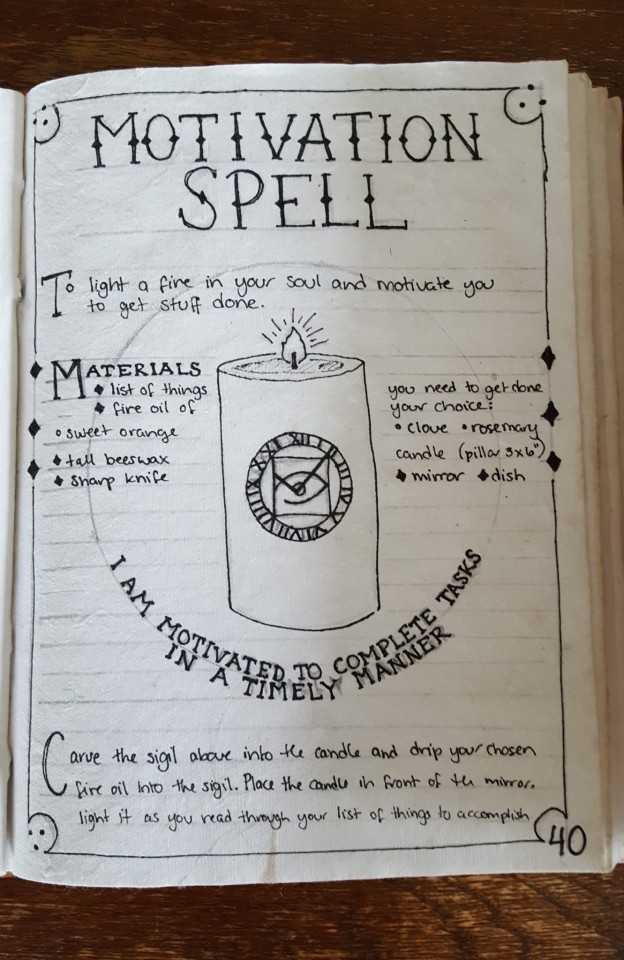 MOTIVATION
SPELL
To light a fire in your soul and motivate you
to get stuff done.
MATERIALS
list of things you need to get done
fire oil of your choice:
sweet orange clove rosemary
tall beeswax candle (pillar 3x6")
sharp knife mirror dish
XII I II III IV V VI VII VIII IX X XI
I AM MOTIVATED TO COMPLETE TASKS
IN A TIMELY MANNER
Carve the sigil above into the candle and drip your chosen
fire oil into the sigil. Place the candle in front of the mirror.
light it as you read through your list of things to accomplish
40